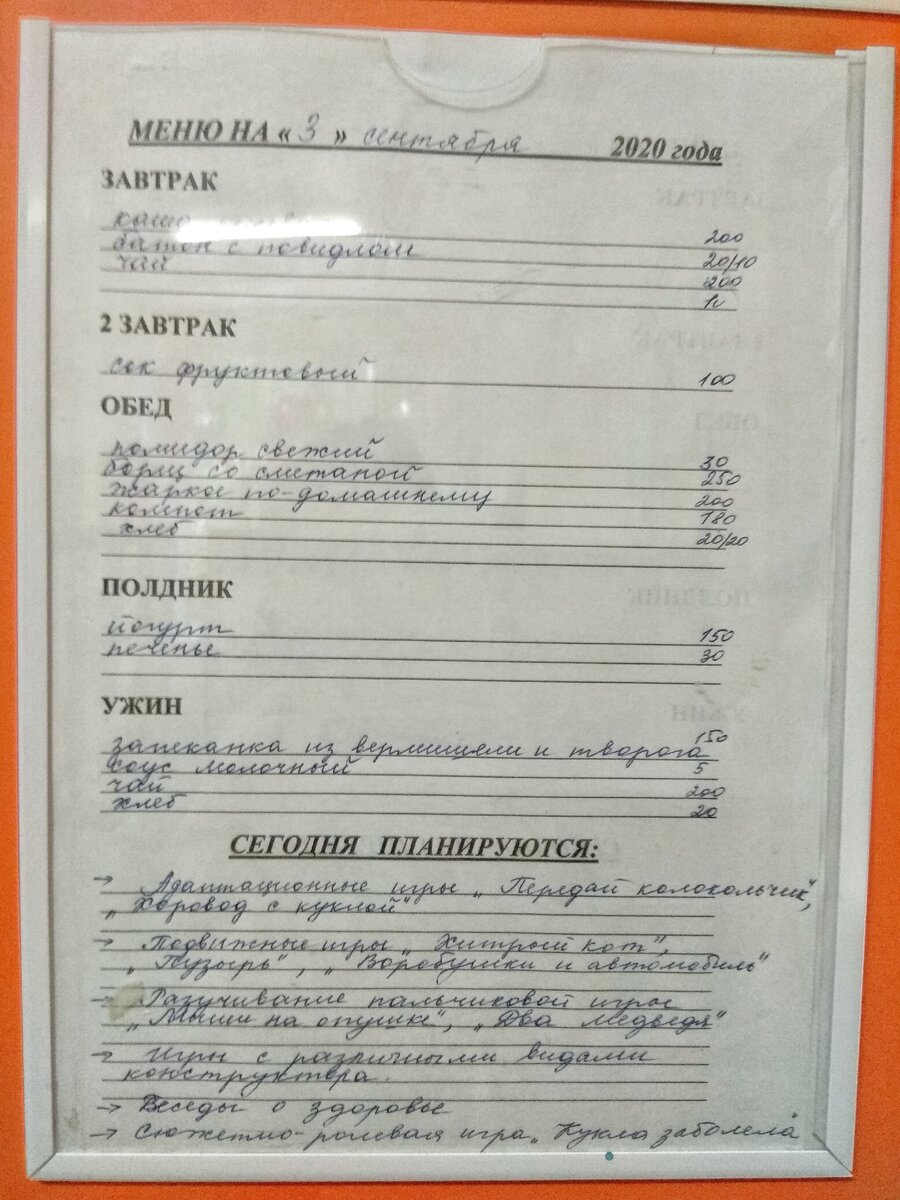 МЕНЮ НА « 3 » сентября 2020 года
ЗАВТРАК
каша 200
батон с повидлом 20/10
чай 200
2 ЗАВТРАК
сок фруктовый 100
ОБЕД
помидор свежий 30
борщ со сметаной 250
жаркое по-домашнему 200
компот 180
хлеб 20/20
ПОЛДНИК
йогурт 150
печенье 30
УЖИН
запеканка из вермишели и творога 150
соус молочный 5
чай 200
хлеб 20
СЕГОДНЯ ПЛАНИРУЮТСЯ:
→ Адаптационные игры „Передай колокольчик",
„Хоровод с куклой"
→ Подвижные игры „Хитрый кот",
„Пузырь", „Воробушки и автомобиль"
→ Разучивание пальчиковой игры
„Мыши на опушке", „Два медведя"
→ Игры с различными видами
конструктора.
→ Беседы о здоровье
→ Сюжетно-ролевая игра „Кукла заболела"